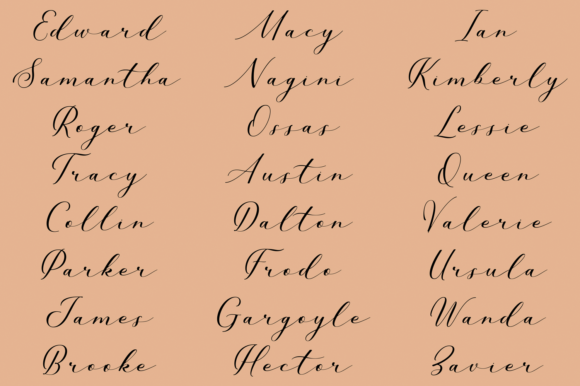 Edward Macy Ian
Samantha Nagini Kimberly
Roger Ossas Lessie
Tracy Austin Queen
Collin Dalton Valerie
Parker Frodo Ursula
James Gargoyle Wanda
Brooke Hector Zavier